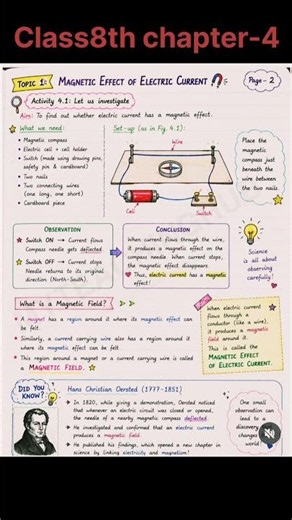 Class8th chapter-4
TOPIC 1: MAGNETIC EFFECT OF ELECTRIC CURRENT
Page - 2
Activity 4.1: Let us investigate
Aim: To find out whether electric current has a magnetic effect.
What we need:
• Magnetic compass
• Electric cell + cell holder
• Switch (made using drawing pins,
safety pin & cardboard)
• Two nails
• Two connecting wires
(one long, one short)
• Cardboard piece
Set-up (as in Fig. 4.1):
Wire
Cell
Switch
Place the
magnetic
compass just
beneath the
wire between
the two nails.
OBSERVATION
Switch ON → Current flows
Compass needle gets deflected.
Switch OFF → Current stops
Needle returns to its original
direction (North-South).
CONCLUSION
When current flows through the wire,
it produces a magnetic effect on the
compass needle. When current stops,
the magnetic effect disappears.
Thus, electric current has a magnetic
effect!
Science
is all about
observing
carefully!
What is a Magnetic Field?
• A magnet has a region around it where its magnetic effect can
be felt.
• Similarly, a current carrying wire also has a region around it
where its magnetic effect can be felt.
• This region around a magnet or a current carrying wire is called
a MAGNETIC FIELD.
When electric current
flows through a
conductor (like a wire),
it produces a magnetic
field around it.
This is called the
MAGNETIC EFFECT
OF ELECTRIC CURRENT.
DID YOU
KNOW?
Hans Christian Oersted (1777-1851)
→ In 1820, while giving a demonstration, Oersted noticed
that whenever an electric circuit was closed or opened,
the needle of a nearby magnetic compass deflected.
→ He investigated and confirmed that an electric current
produces a magnetic field.
→ He published his findings, which opened a new chapter in
science by linking electricity and magnetism!
One small
observation can
lead to a
discovery
changes
world